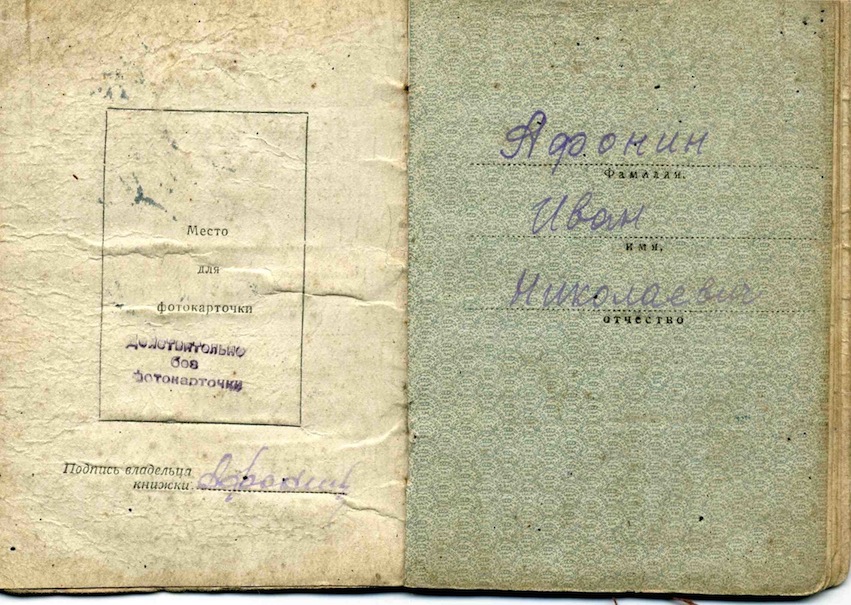 Место
для
фотокарточки
Действительно
без
фотокарточки
Подпись владельца
книжки Афонин
Афонин
Фамилия,
Иван
имя,
Николаевич
отчество